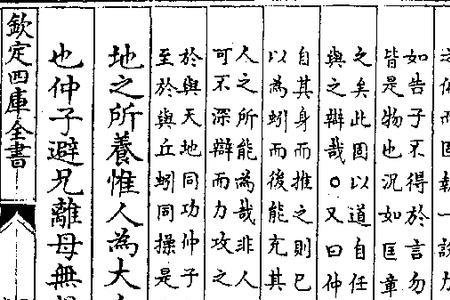 如告子不得於言勿
皆是物也況如匡章
之矣此固以道自任
與之辯哉○又曰仲
自其身而推之則已
以為蚓而後能充其
人之所能為哉非人
可不深辯而力攻之
於與天地同功仲子
至於與丘蚓同操是
地之所養惟人為大
也仲子避兄離母無
欽定四庫全書